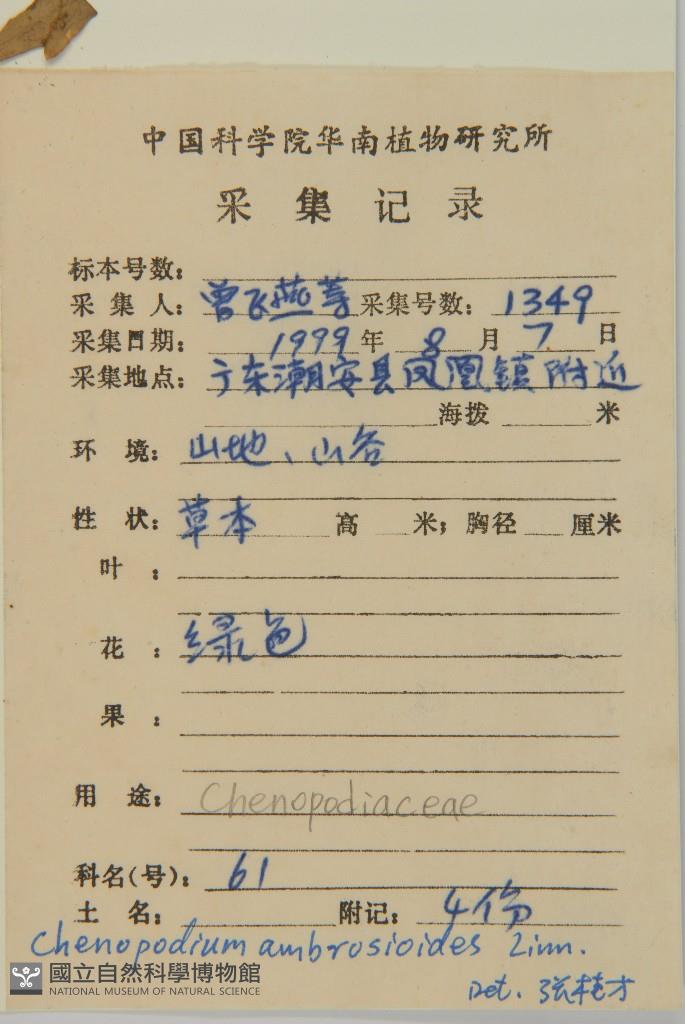 中国科学院华南植物研究所
采集记录
标本号数：
采集人：曾飞燕等 采集号数：1349
采集日期：1999年 8月 7日
采集地点：广东潮安县凤凰镇附近
海拨 米
环境：山地、山谷
性状：草本 高 米；胸径 厘米
叶：
花：绿色
果：
用途：Chenopodiaceae
科名(号)：61
土名： 附记：4份
Chenopodium ambrosioides Linn.
國立自然科學博物館
NATIONAL MUSEUM OF NATURAL SCIENCE
Det. 张桂才